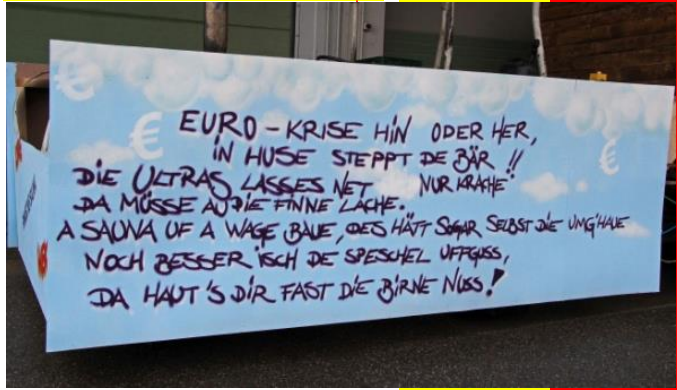 EURO - KRISE HIN ODER HER,
IN HUSE STEPPT DE BÄR !!
DIE ULTRAS LASSES NET NUR KRACHE
DA MÜSSE AU DIE FINNE LACHE.
A SAUNA UF A WAGE BAUE, DES HÄTT SOGAR SELBST DIE UMG'HAUE
NOCH BESSER ISCH DE SPESCHEL UFFGUSS,
DA HAUT'S DIR FAST DIE BIRNE NUSS!